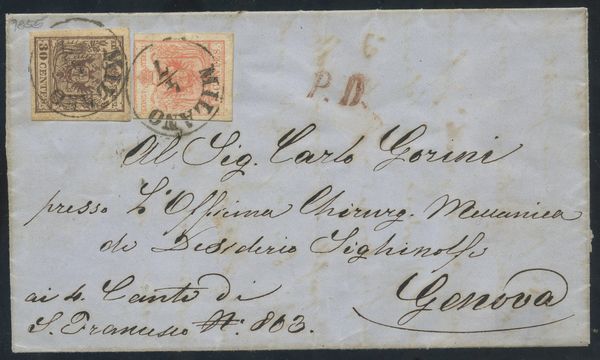 1855
30 CENTES
MILANO
MILANO
P.D.
Al Sig. Carlo Gorini
presso L'Officina Chirurg. Meccanica
di Desiderio Sighinolfi
ai 4. Canti di
S. Francesco N. 863.
Genova